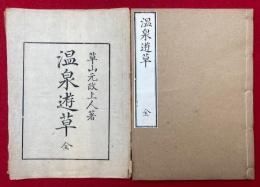 草山元政上人著
温泉遊草 全
温泉遊草 全